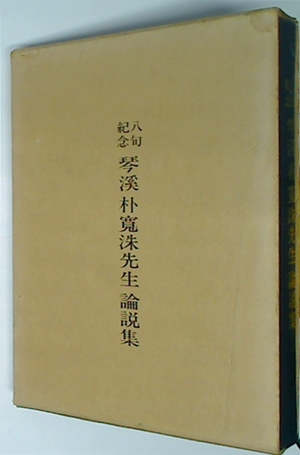 八旬紀念 琴溪 朴寬洙先生 論説集